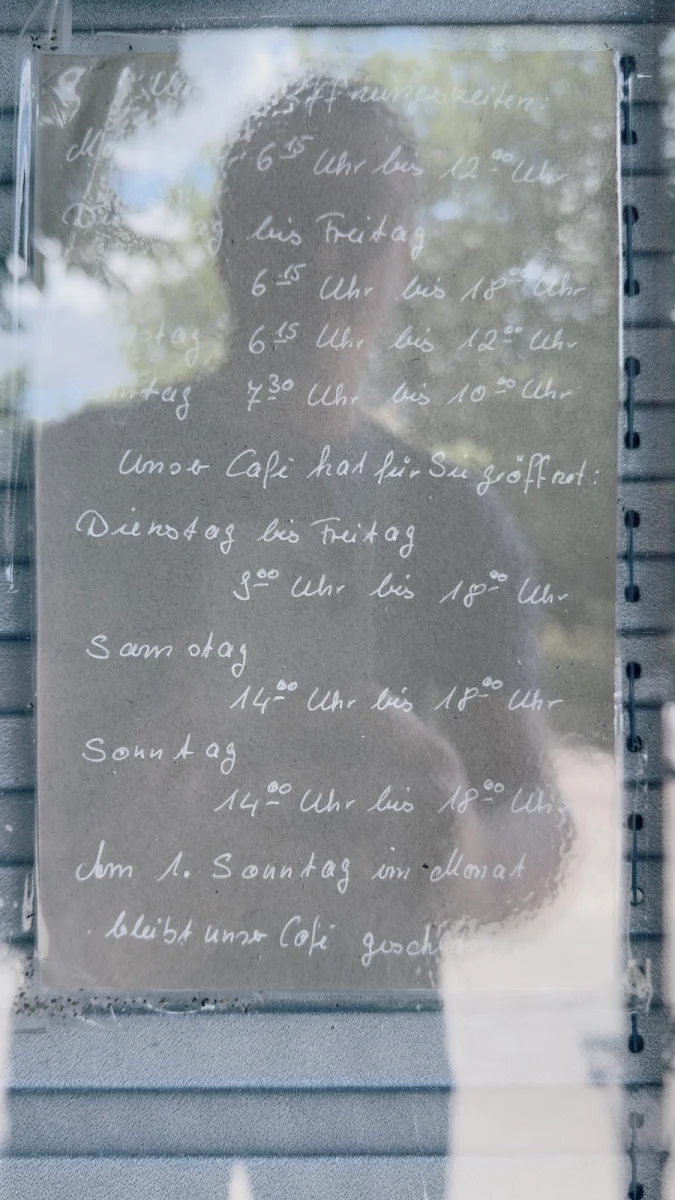 Öffnungszeiten:
6 15 Uhr bis 12 00 Uhr
bis Freitag
6 15 Uhr bis 18 00 Uhr
6 15 Uhr bis 12 00 Uhr
7 30 Uhr bis 10 00 Uhr
Unser Café hat für Sie geöffnet:
Dienstag bis Freitag
9 00 Uhr bis 18 00 Uhr
Samstag
14 00 Uhr bis 18 00 Uhr
Sonntag
14 00 Uhr bis 18 00 Uhr
Am 1. Sonntag im Monat
bleibt unser Café